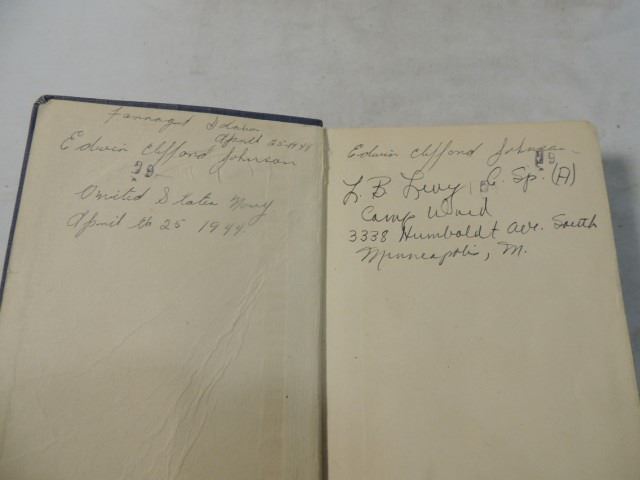 Farragut Idaho
April 25-1944
Edwin Clifford Johnson
99
United States Navy
April th 25 1944
Edwin Clifford Johnson
99
L. B. Levy, C. Sp. (A)
Camp Ward
3338 Humboldt Ave. South
Minneapolis, M.